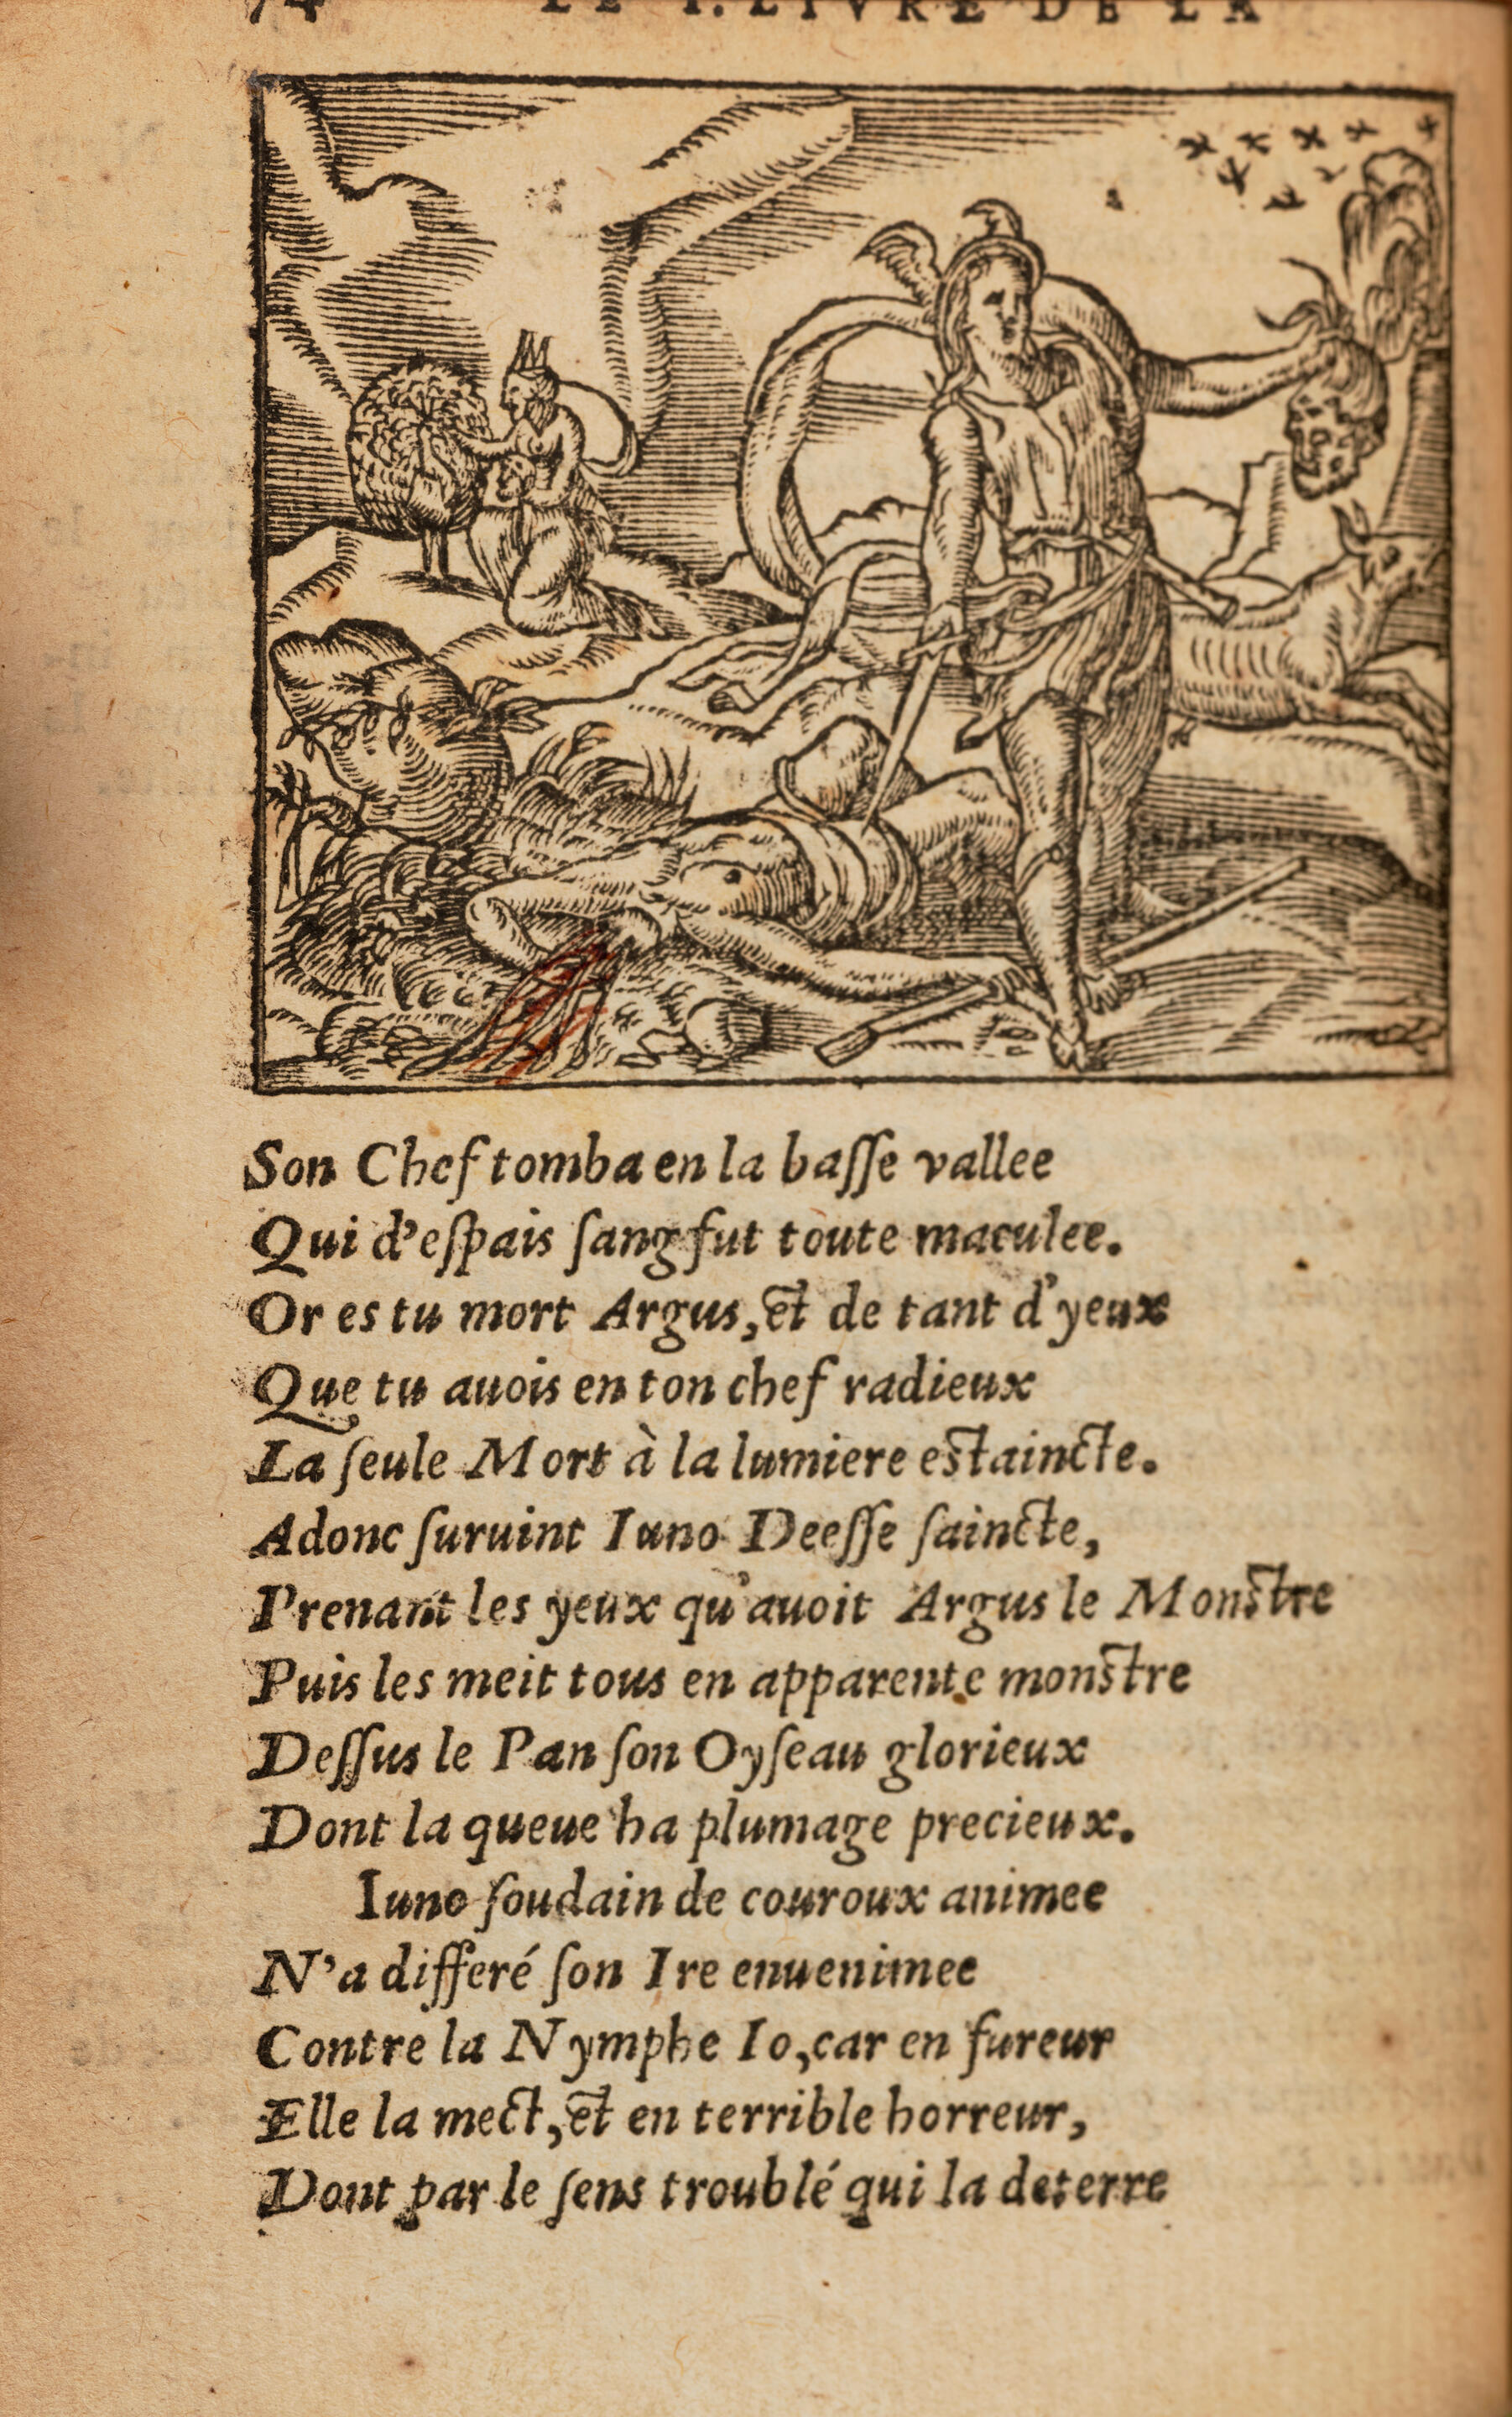 74 LE I. LIVRE DE LA
Son Chef tomba en la baſſe vallee
Qui d'eſpais ſang fut toute maculee.
Or es tu mort Argus, et de tant d'yeux
Que tu auois en ton chef radieux
La ſeule Mort à la lumiere eſtaincte.
Adonc ſuruint Iuno Deeſſe ſaincte,
Prenant les yeux qu'auoit Argus le Monſtre
Puis les meit tous en apparente monſtre
Deſſus le Pan ſon Oyſeau glorieux
Dont la queue ha plumage precieux.
Iuno ſoudain de couroux animee
N'a differé ſon Ire enuenimee
Contre la Nymphe Io, car en fureur
Elle la mect, et en terrible horreur,
Dont par le ſens troublé qui la deterre